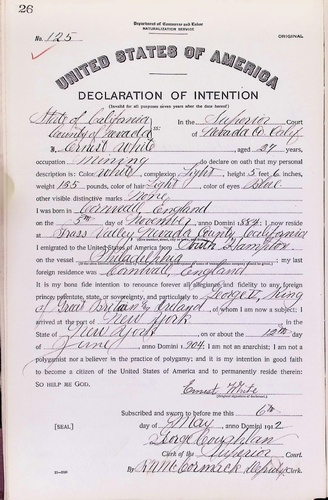 26
Department of Commerce and Labor
NATURALIZATION SERVICE
No. 125
ORIGINAL
UNITED STATES OF AMERICA
DECLARATION OF INTENTION
(Invalid for all purposes seven years after the date hereof)
State of California
In the Superior Court
County of Nevada ss:
of Nevada Co. Calif.
I, Ernest White, aged 27 years,
occupation Mining, do declare on oath that my personal
description is: Color White, complexion Light, height 5 feet 6 inches,
weight 135 pounds, color of hair Light, color of eyes Blue
other visible distinctive marks None
I was born in Cornwall, England
on the 5th day of November, anno Domini 1884; I now reside
at Grass Valley, Nevada County, California
I emigrated to the United States of America from South Hampton
on the vessel Philadelphia; my last
foreign residence was Cornwall, England
It is my bona fide intention to renounce forever all allegiance and fidelity to any foreign
prince, potentate, state, or sovereignty, and particularly to George V, King
of Great Britain & Ireland, of whom I am now a subject; I
arrived at the port of New York, in the
State of New York, on or about the 12th day
of June, anno Domini 1904; I am not an anarchist; I am not a
polygamist nor a believer in the practice of polygamy; and it is my intention in good faith
to become a citizen of the United States of America and to permanently reside therein:
SO HELP ME GOD.
Ernest White
(Original signature of declarant.)
Subscribed and sworn to before me this 6th
[SEAL] day of May, anno Domini 1912
George Coughlan
Clerk of the Superior Court.
By R. N. McCormack, Deputy Clerk.